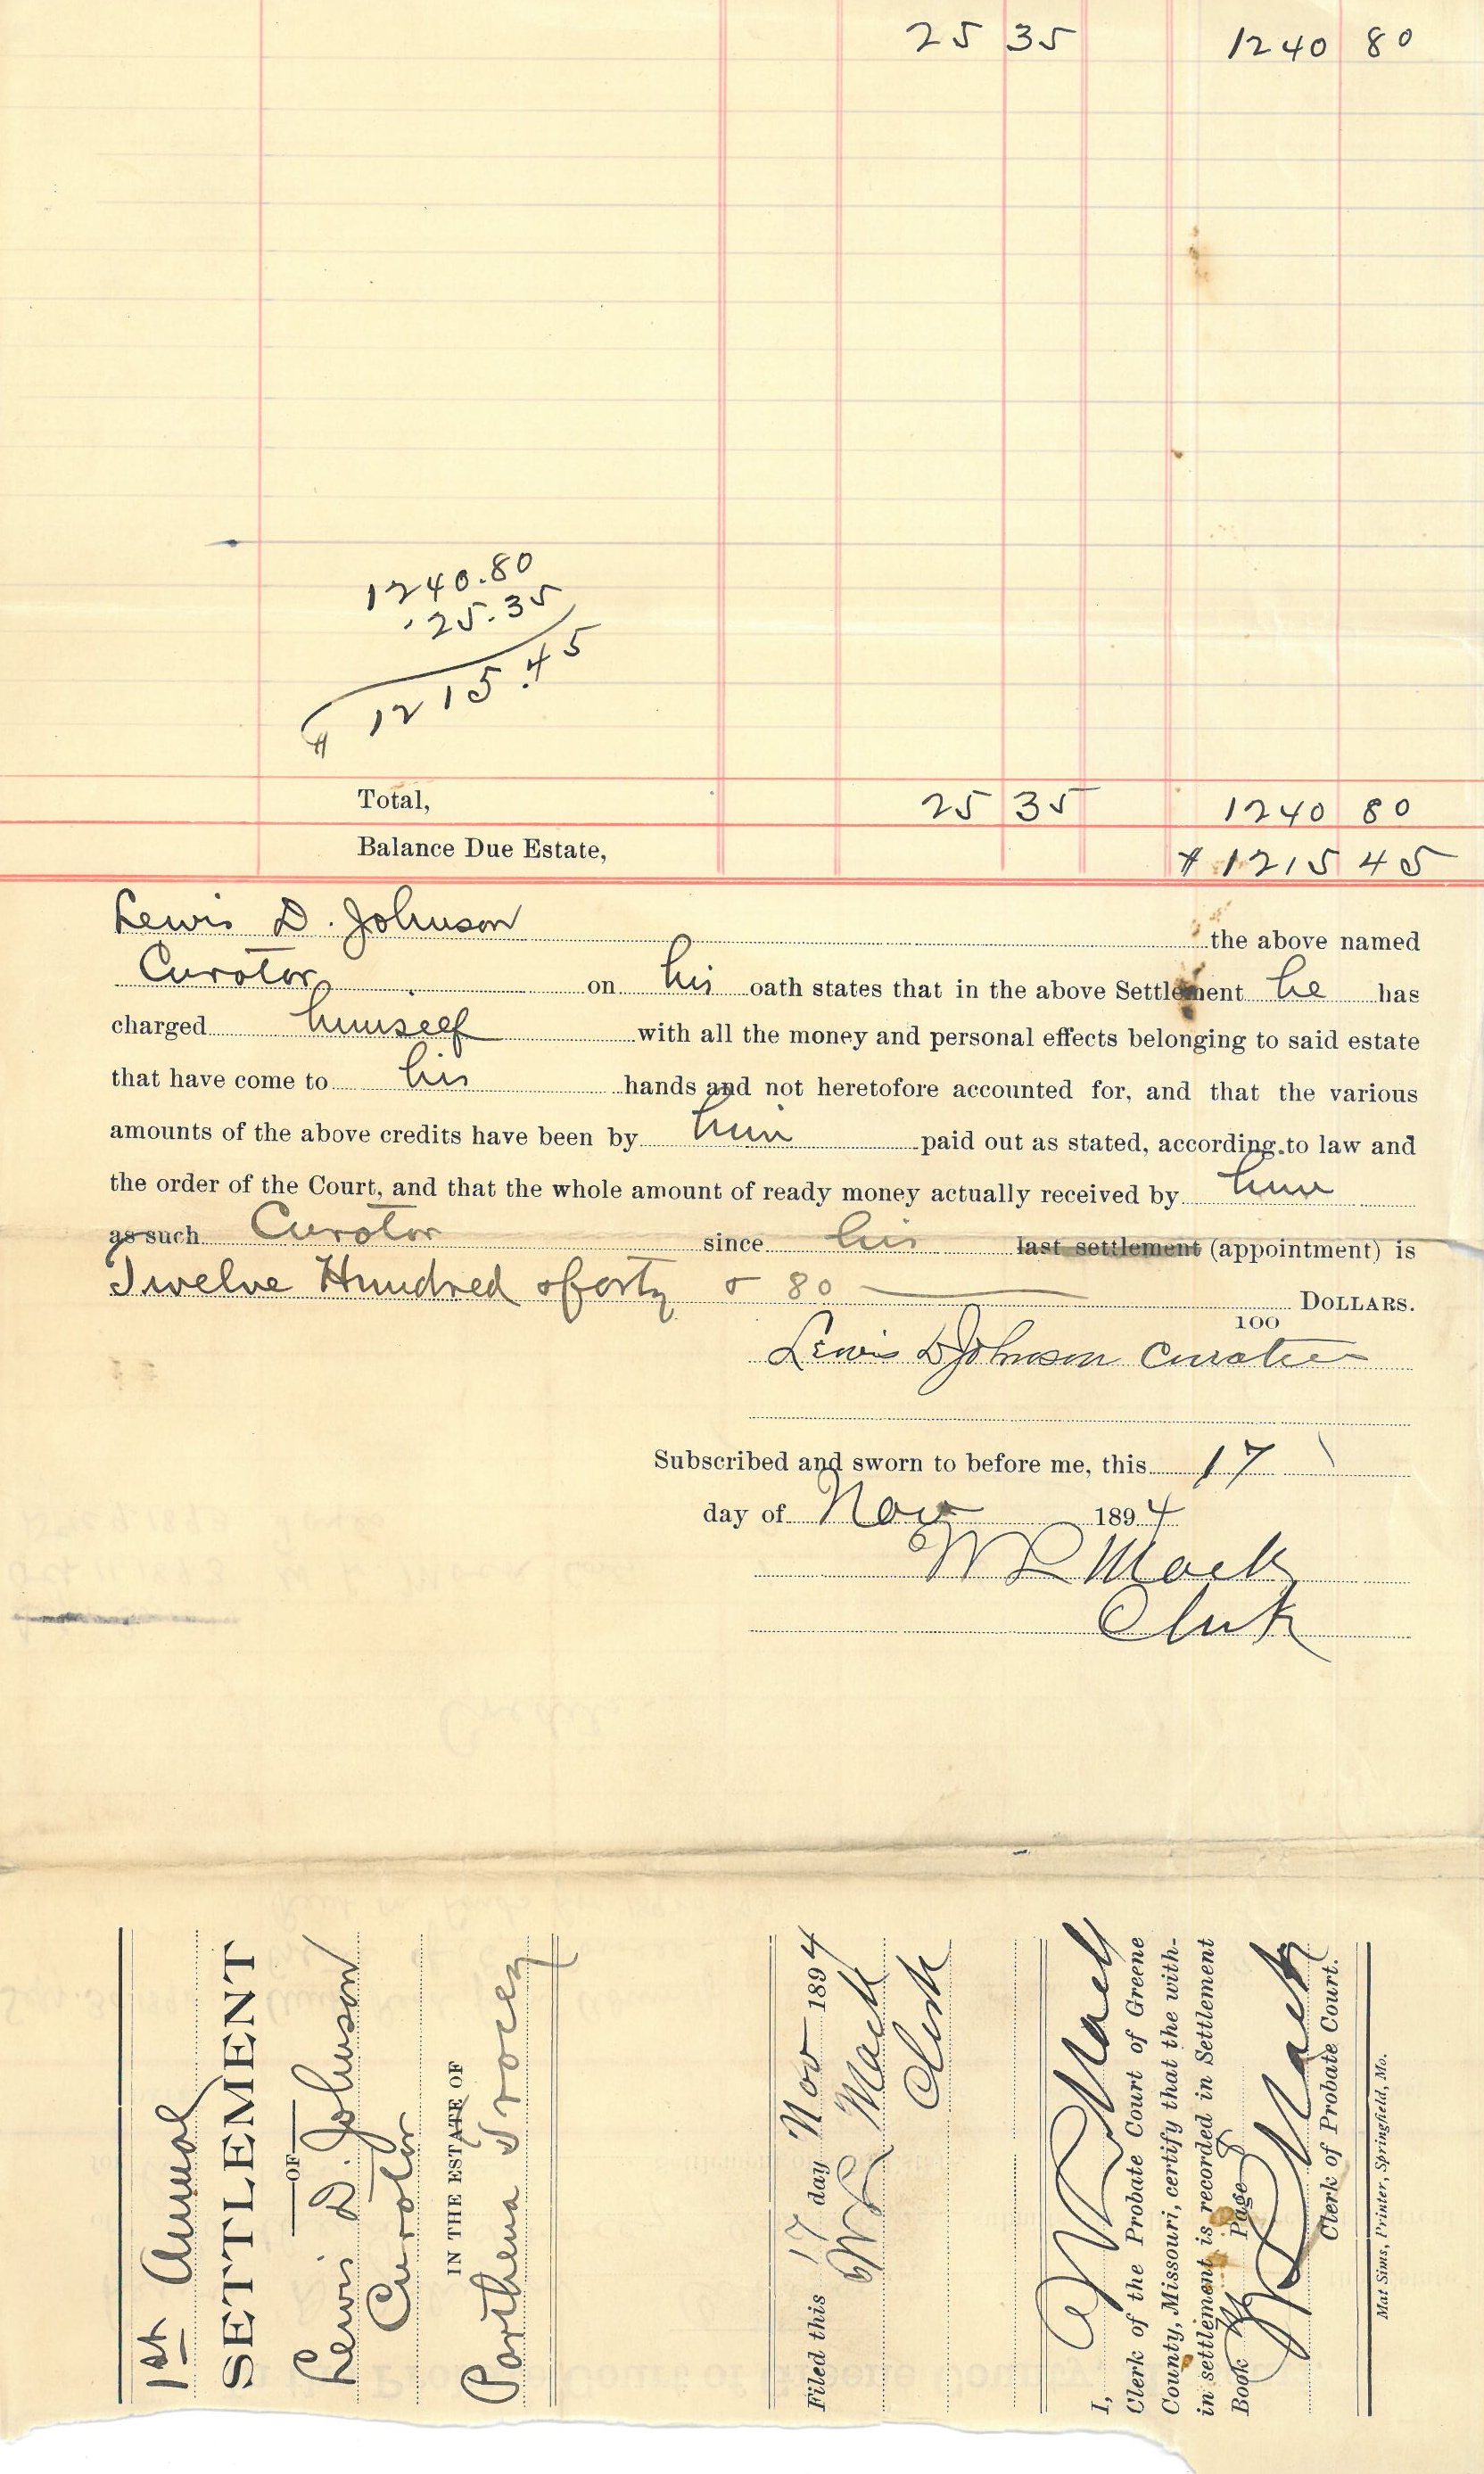 25 35 1240 80
1240.80
25.35
1215.45
Total, 25 35 1240 80
Balance Due Estate, $1215 45
Lewis D. Johnson the above named
Curator on his oath states that in the above Settlement he has
charged himself with all the money and personal effects belonging to said estate
that have come to his hands and not heretofore accounted for, and that the various
amounts of the above credits have been by him paid out as stated, according to law and
the order of the Court, and that the whole amount of ready money actually received by him
as such Curator since his last settlement (appointment) is
Twelve Hundred & forty & 80 DOLLARS.
100
Lewis D Johnson Curator
Subscribed and sworn to before me, this 17
day of Nov 1894
W R Mack
Clerk
1st Annual
SETTLEMENT
OF
Lewis D. Johnson
Curator
IN THE ESTATE OF
Parthena Tracey
Filed this 17 day Nov 1894
W R Mack
Clerk
I, W R Mack
Clerk of the Probate Court of Greene
County, Missouri, certify that the with-
in settlement is recorded in Settlement
Book Page
W R Mack
Clerk of Probate Court.
Mat Sims, Printer, Springfield, Mo.